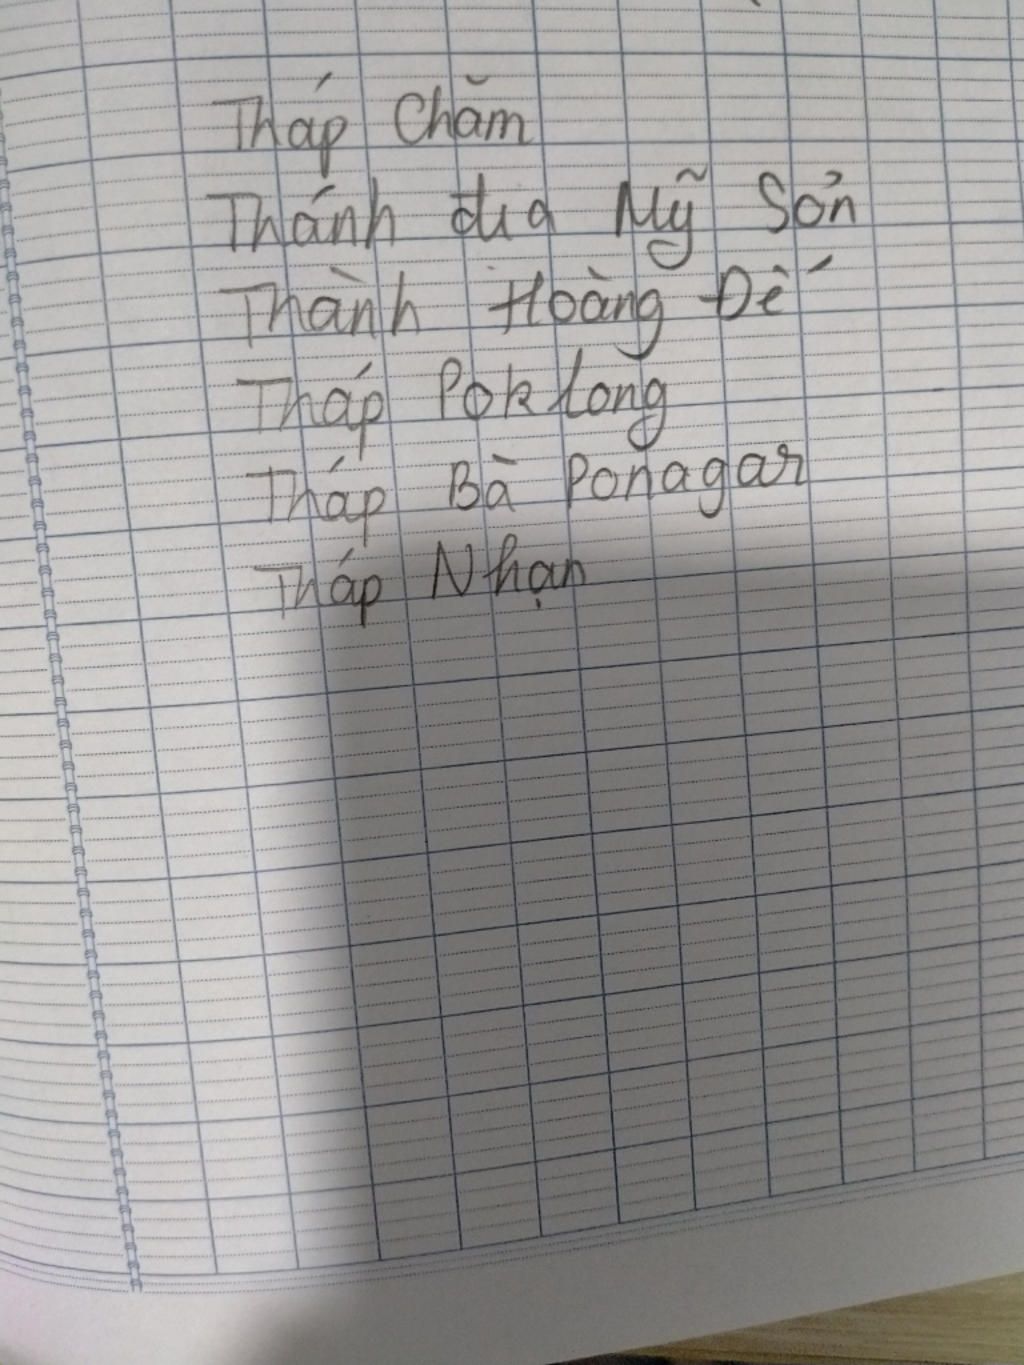 Tháp Chăm
Thánh địa Mỹ Sơn
Thành Hoàng Đế
Tháp Poktong
Tháp Bà Ponagar
Tháp Nhạn